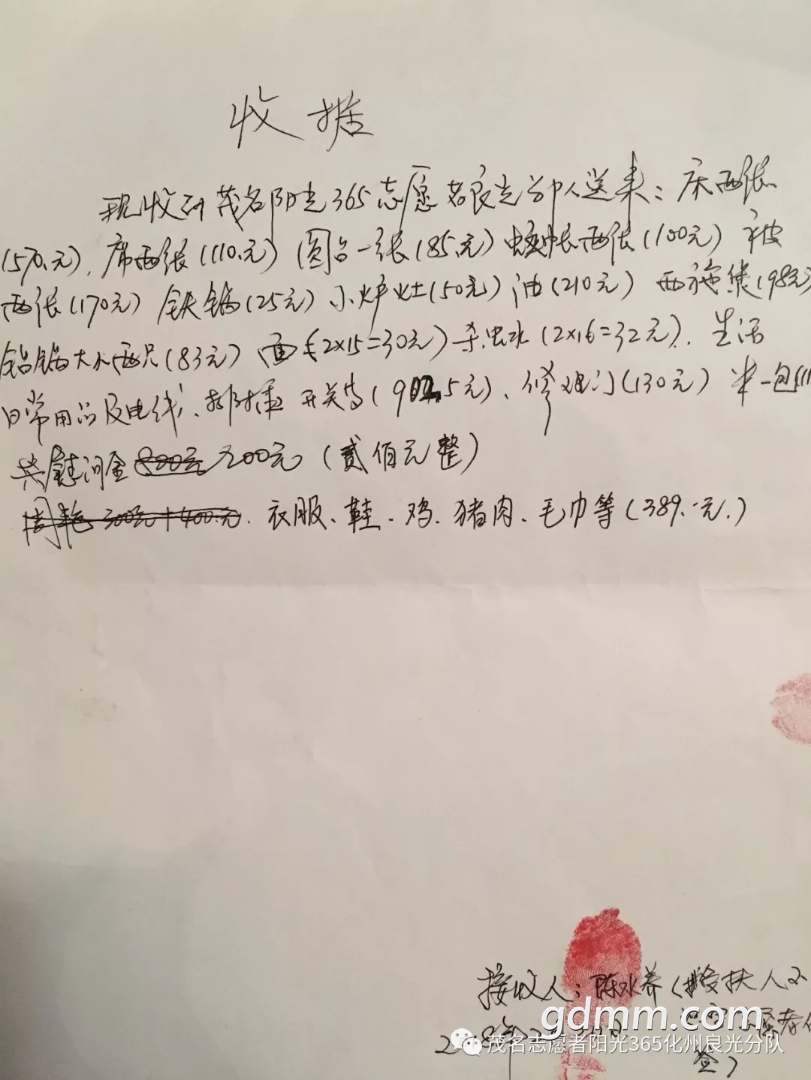 收据
现收到茂名阳光365志愿者良光部人送来：床两张
(570.元)，席两张(110.元) 圆台一张(85.元) 蚊帐两张(100元) 被
两张(170元) 铁锅(25元) 小炉灶(50元) 油(210元) (98元)
铝锅大小两只(83元) 面(2x15=30元) 杀虫水(2x16=32元)、生活
日常用品及电线、排插 开关等(5元)、修理门(130元) 米一包(11
慰问金 200元 (贰佰元整)
衣服、鞋、鸡、猪肉、毛巾等(389.元.)
接收人：陈水养(扶人
签)
gdmm.com
茂名志愿者阳光365化州良光分队